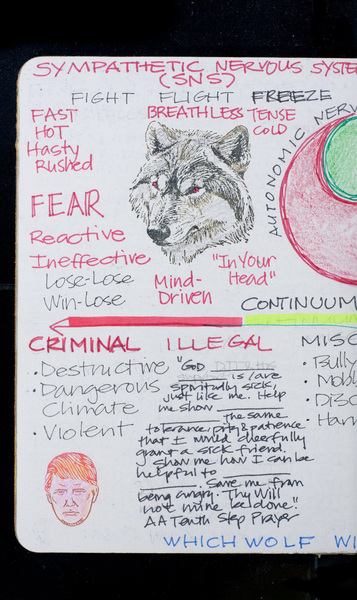 SYMPATHETIC NERVOUS SYSTE
(SNS)
FIGHT FLIGHT FREEZE
FAST
HOT
Hasty
Rushed
BREATHLESS
TENSE
COLD
AUTONOMIC NERV
FEAR
Reactive
Ineffective
Lose-Lose
Win-Lose
Mind-
Driven
"In Your
Head"
CONTINUUM
CRIMINAL ILLEGAL
• Destructive
• Dangerous
Climate
• Violent
"GOD
is/are
spiritually sick,
just like me. Help
me show the same
tolerance, pity & patience
that I would cheerfully
grant a sick friend.
Show me how I can be
helpful to
. Save me from
being angry. Thy Will
not mine be done."
AA Tenth Step Prayer
MISC
• Bully
• Mob
• Disc
• Harr
WHICH WOLF WI